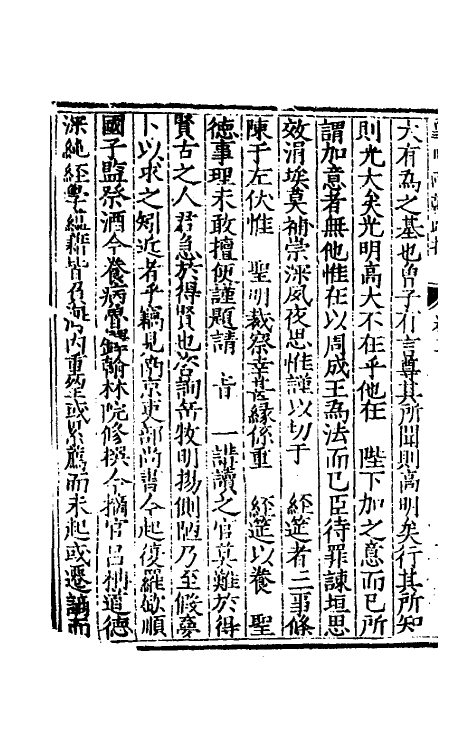 大有為之基也曾子有言尊其所聞則高明矣行其所知
則光大矣光明高大不在乎他在　陛下加之意而已所
謂加意者無他惟在以周成王為法而已臣待罪諫垣思
效涓埃莫補崇深夙夜思惟謹以切于　經筵者三事條
陳于左伏惟　聖明裁察幸甚緣係重　經筵以養　聖
德事理未敢擅便謹題請　旨　一講讀之官莫難於得
賢古之人君急於得賢也咨詢岳牧明揚側陋乃至假夢
卜以求之矧近者乎竊見南京吏部尚書今起復羅欽順
國子監祭酒今養病魯鐸翰林院修撰今摘官呂柟道德
深純經學蘊藉皆負海內重望或累薦而未起或遷謫而